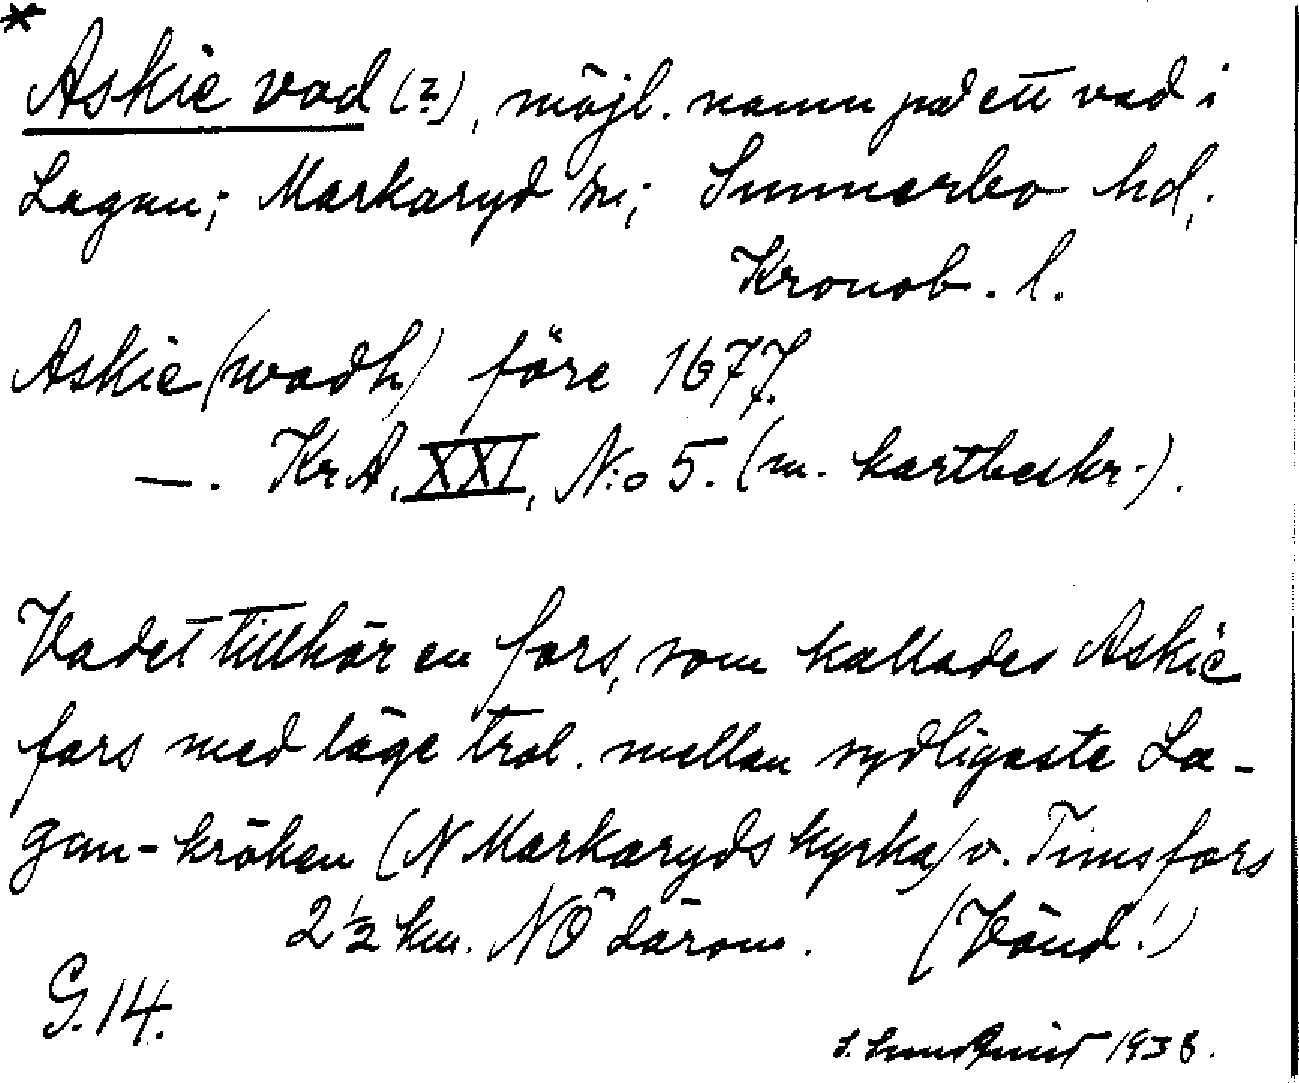 *
Askie vad (?), möjl. namn på ett vad i
Lagan; Markaryd sn; Sunnerbo hd,
Kronob. l.
Askie (wadh) före 1677.
—. KrA, XXI, N:o 5. (m. kartbeskr.).
Vadet tillhör en fors, som kallades Askie
fors med läge trol. mellan sydligaste La-
gan-kröken (N Markaryds kyrka) o. Timsfors
2 1/2 km. NÖ därom. (Vänd!)
G. 14.
S. Sundquist 1938.